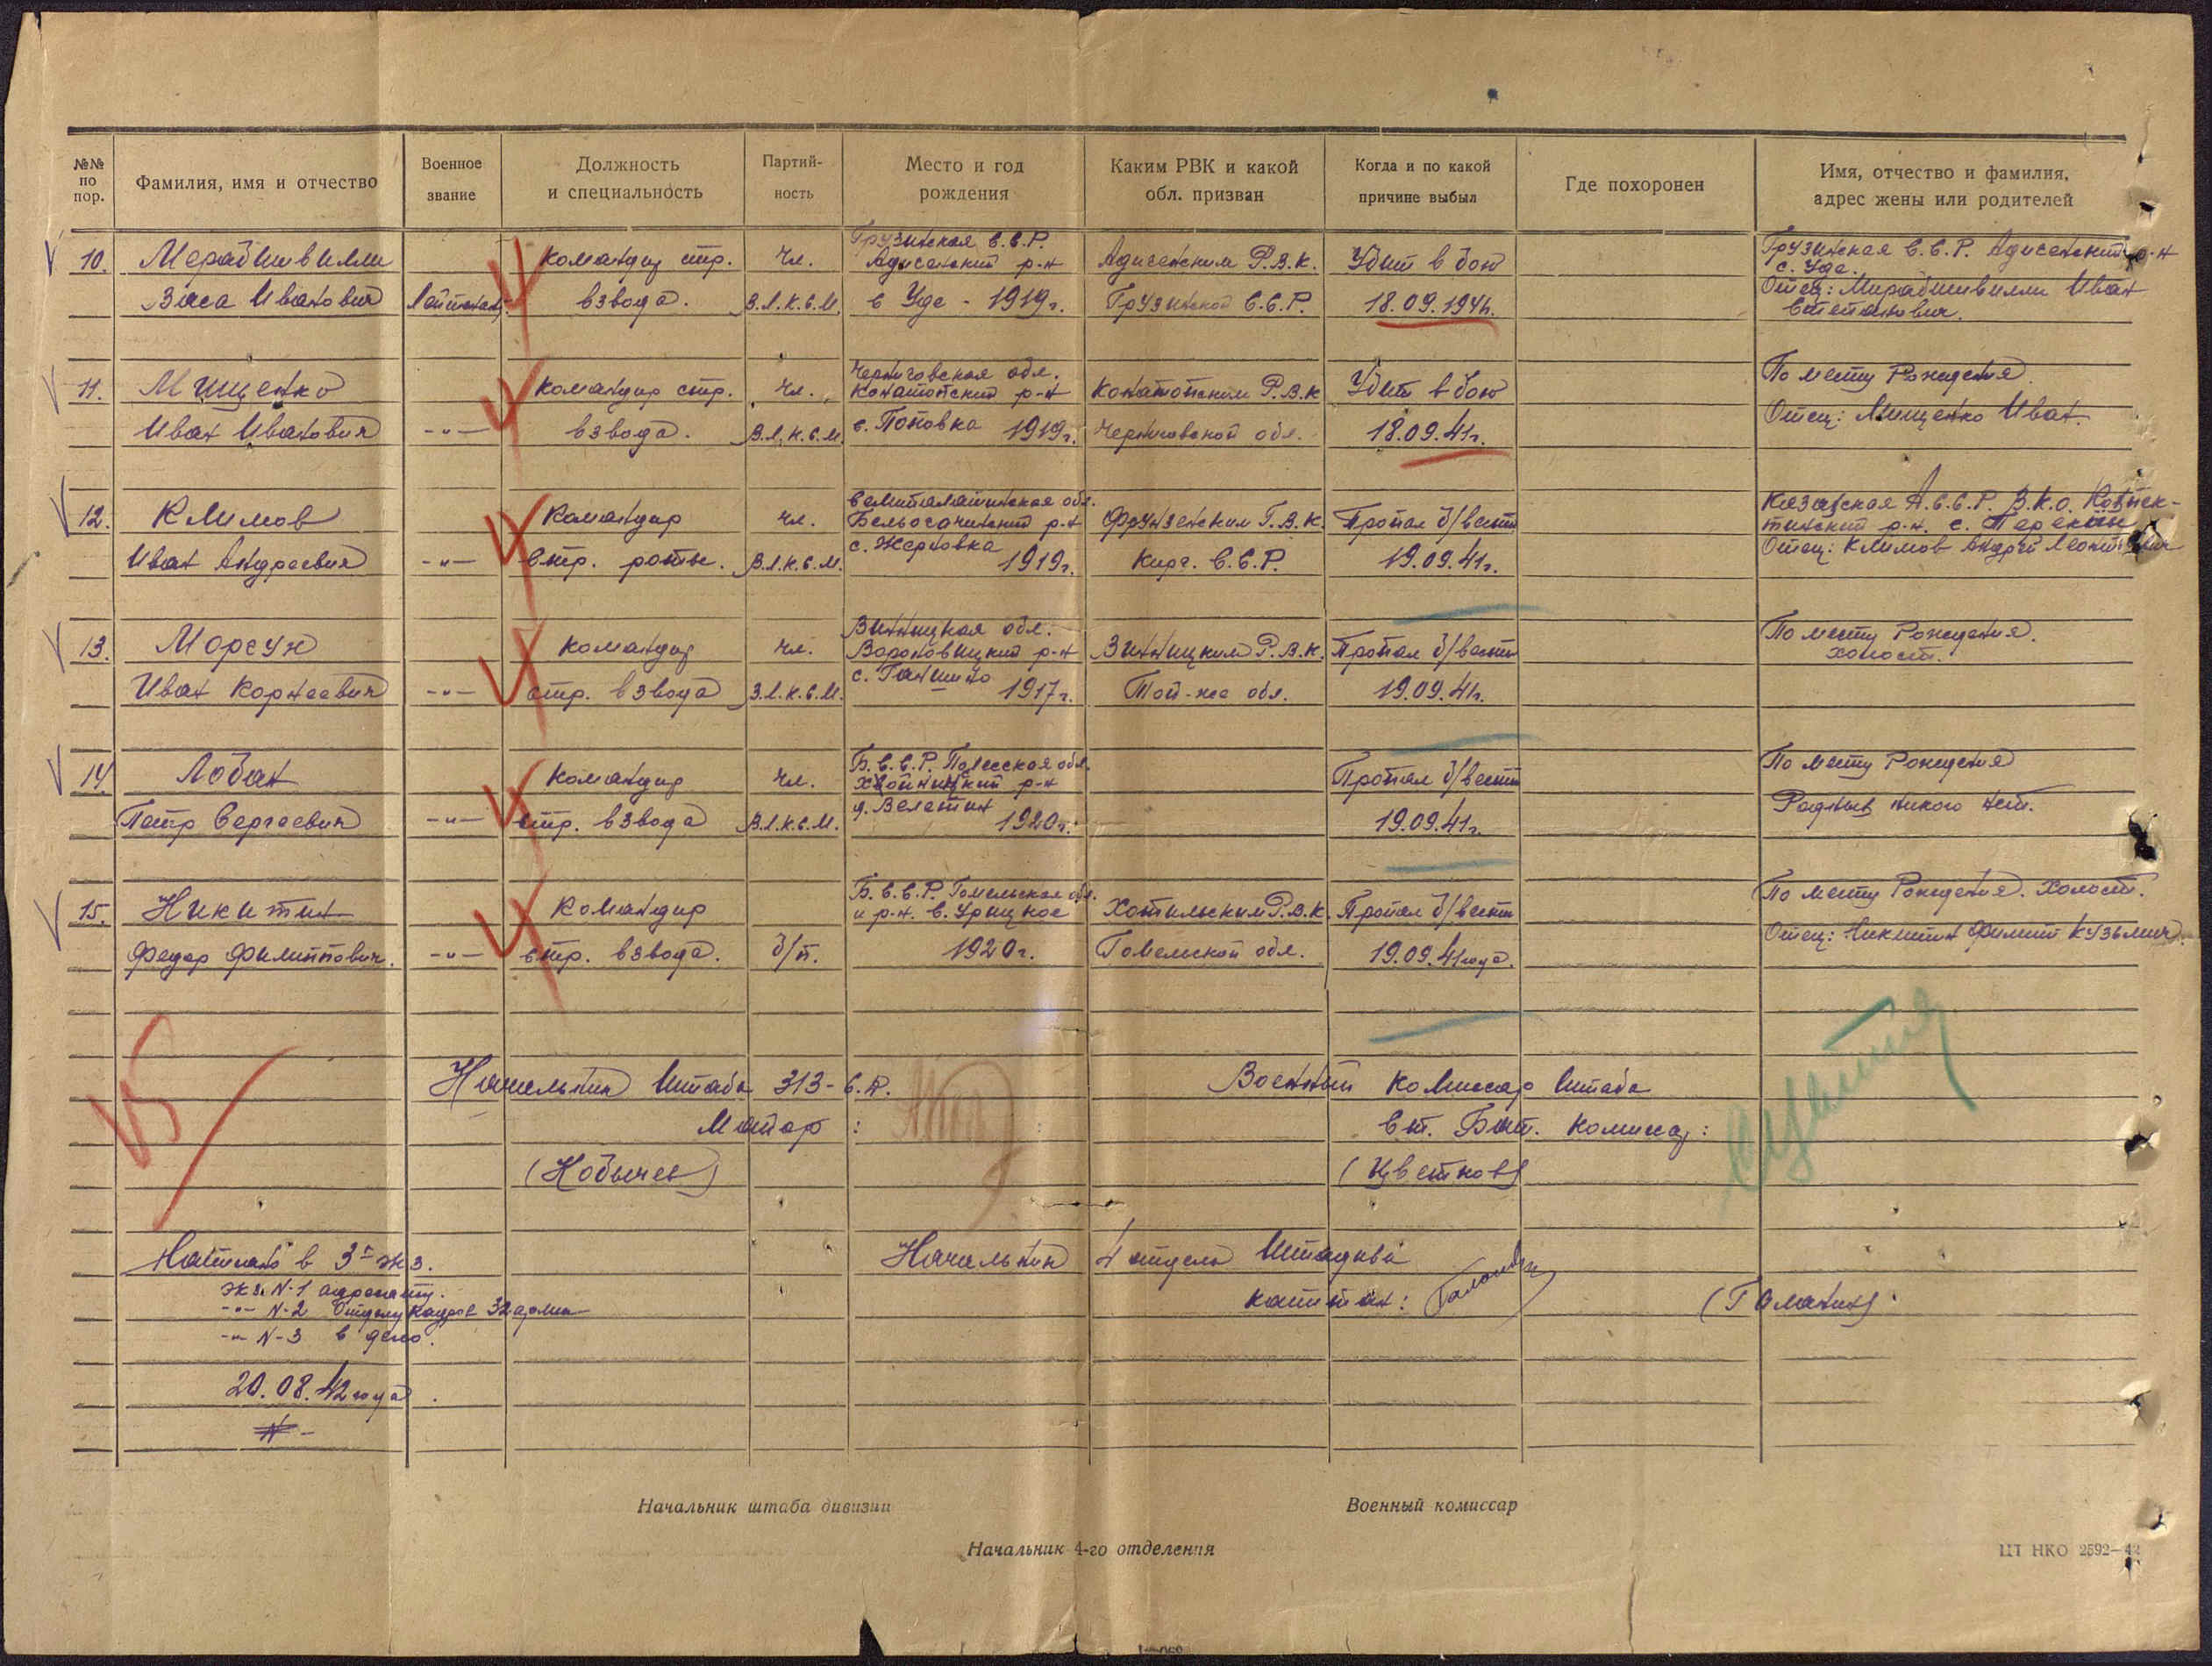 №№ по пор.
Фамилия, имя и отчество
Военное звание
Должность и специальность
Партий-ность
Место и год рождения
Каким РВК и какой обл. призван
Когда и по какой причине выбыл
Где похоронен
Имя, отчество и фамилия, адрес жены или родителей
Грузинская С.С.Р. Грузинская С.С.Р. Адигенский р-н
10. Мерабишвили командир стр. чл. р-н Р.В.К. Убит в бою с. Уде.
Отец: Мирабишвили Иван
Васа Иванович Лейтенант взвода. В.Л.К.С.М. с Уде - 1919г. Грузинской С.С.Р. 18.09.194г. Степанович.
Черниговская обл. По месту Рождения.
11. Мищенко командир стр. чл. Конатопский р-н Конатопским Р.В.К Убит в бою
Отец: Мищенко Иван.
Иван Иванович -"- взвода. В.Л.К.С.М. с. Поповка 1919г. Черниговской обл. 18.09.41г.
Семипалатинская обл. Казахская А.С.С.Р. В.К.О.
12. Климов Командир чл. р-н Фрунзенским Г.В.К. Пропал б/вести р-н. с.
с. Жерновка Отец: Климов Андрей
Иван Андреевич -"- стр. роты. В.Л.К.С.М. 1919г. Кирг. С.С.Р. 19.09.41г.
Винницкая обл. По месту Рождения.
13. Моргун командир чл. Вороновицкий р-н Винницким Р.В.К. Пропал б/вести холост.
Иван Корнеевич -"- стр. взвода В.Л.К.С.М. с. 1917г. Той-же обл. 19.09.41г.
Б.С.С.Р. Полесская обл. По месту Рождения
14. Лобан Командир чл. Хойникский р-н Пропал б/вести
Родных никого нет.
Петр Сергеевич -"- стр. взвода В.Л.К.С.М. д. Велетин 1920г. 19.09.41г.
Б.С.С.Р. Гомельская обл. По месту Рождения. Холост.
15. Никитин Командир и р-н. с. Урицкое Р.В.К. Пропал б/вести
Отец: Никитин Филип Кузьмич.
Федор Филиппович. -"- стр. взвода. б/п. 1920г. Гомельской обл. 19.09.41года.
15
Начальник Штаба 313-С.Д. Военный Комиссар Штаба
Майор : Ст. Бат. комиссар:
(Кобычев) (Цветков)
в 3х экз. Начальник 4 отдела Штадива
экз. N-1 адресату. капитан: (Галанин)
-"- N-2 Отделу Кадров 32 армии
-"- N-3 в дело.
20.08.42года.
Начальник штаба дивизии Военный комиссар
Начальник 4-го отделения
ЦТ НКО 2592—42